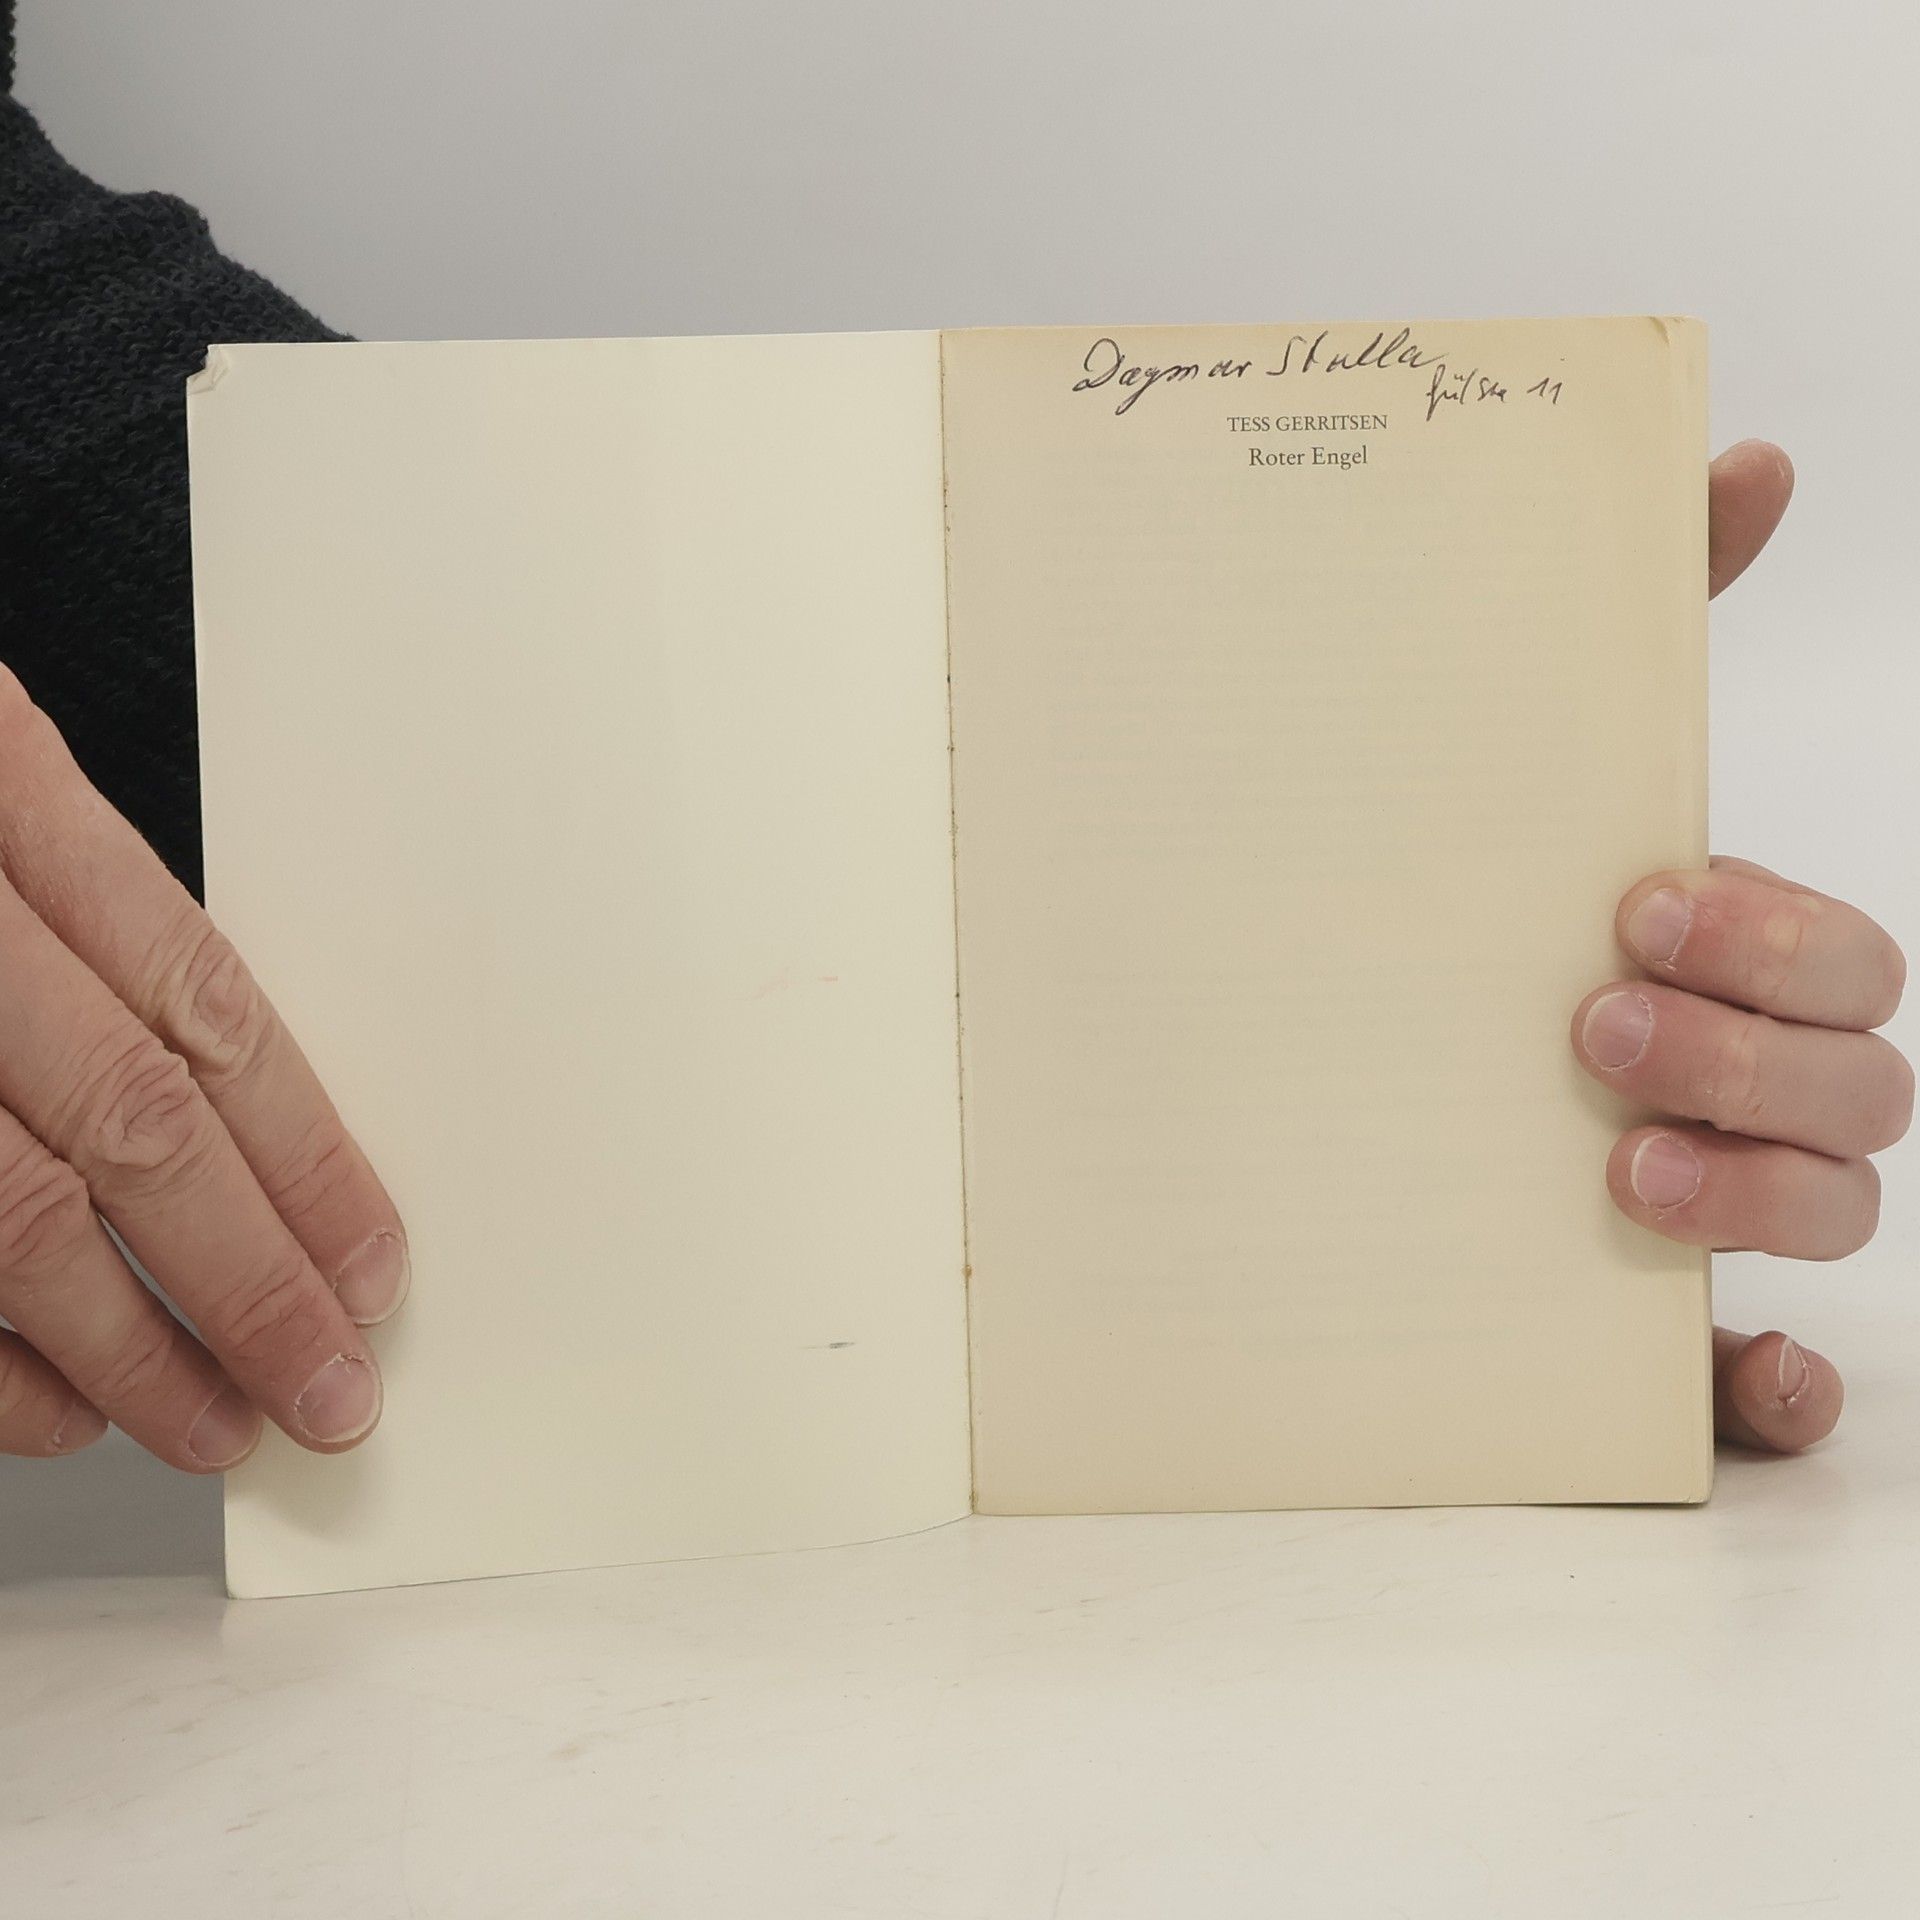 Dagmar Stulla
11
TESS GERRITSEN
Roter Engel